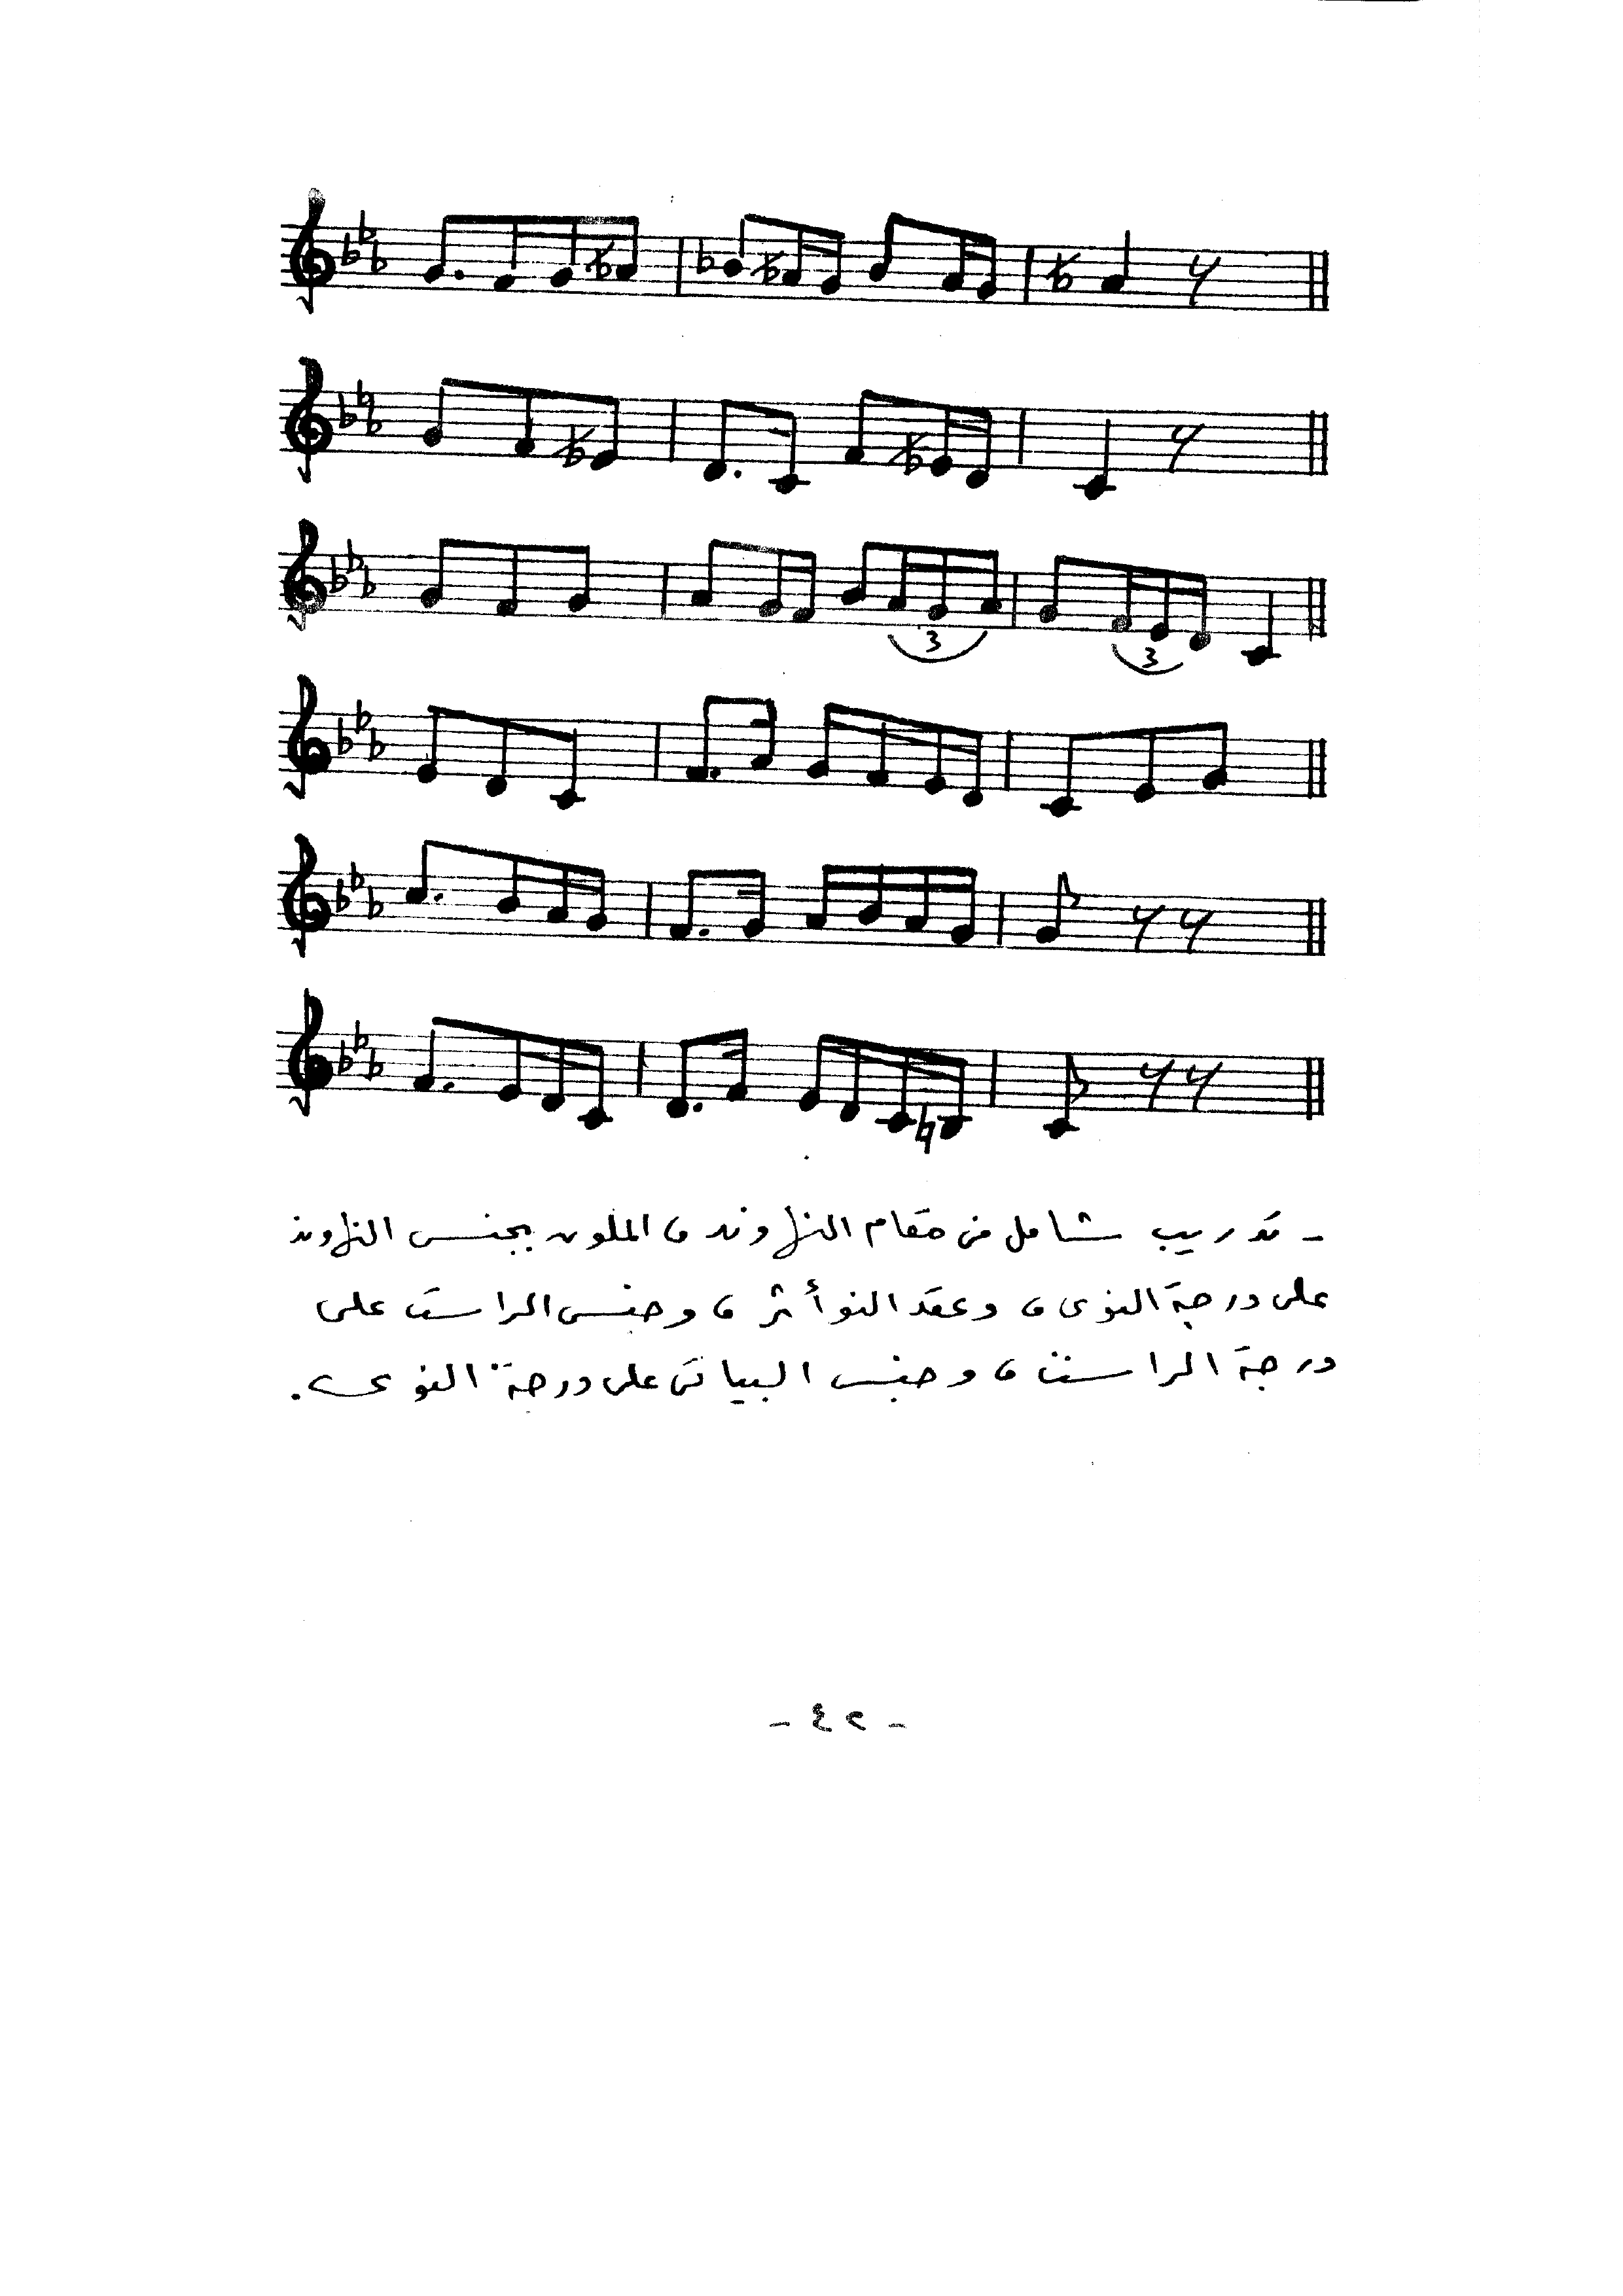 3
3
- تدريب شامل من مقام النهاوند ، الملون بجنس النهاوند
على درجة النوى ، وعقد النوأثر ، وجنس الراست على
درجة الراست ، وجنس البياتى على درجة النوى .
- ٤٢ -